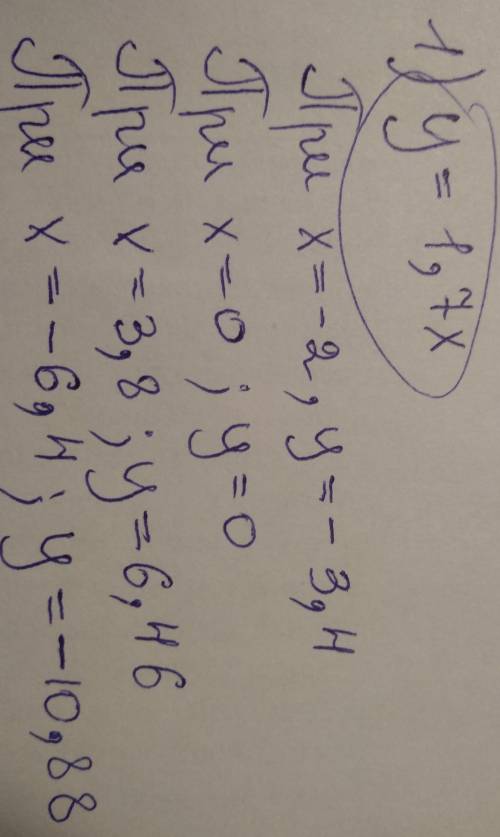 1) y = 1,7x
При x = -2, y = -3,4
При x = 0; y = 0
При x = 3,8; y = 6,46
При x = -6,4; y = -10,88